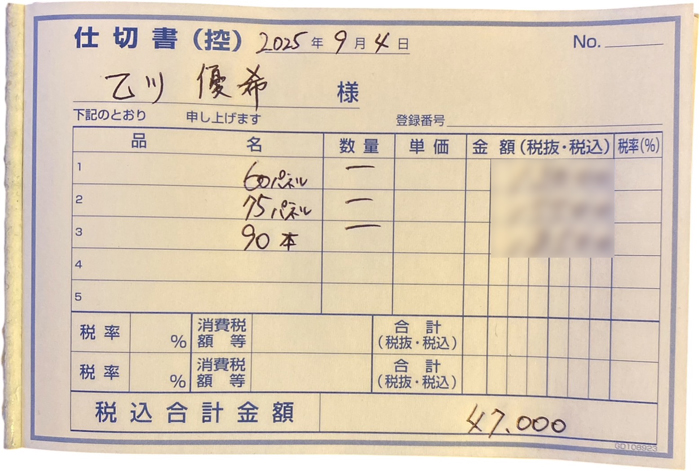 仕切書(控) 2025年9月4日 No.
乙川 優希 様
下記のとおり 申し上げます 登録番号
品名 数量 単価 金額(税抜・税込) 税率(%)
1 60パネル 一
2 75パネル 一
3 90本 一
4
5
税率 % 消費税額等 合計(税抜・税込)
税率 % 消費税額等 合計(税抜・税込)
税込合計金額 47,000